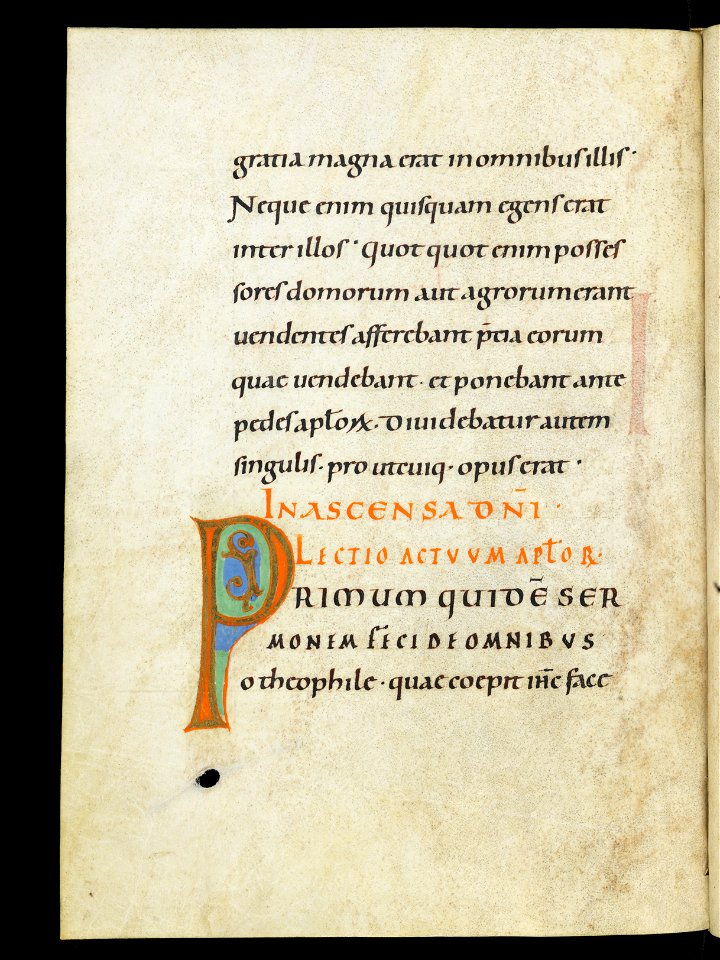 gratia magna erat in omnibus illis·
Neque enim quisquam egens erat
inter illos· Quot quot enim posses
sores domorum aut agrorum erant
uendentes afferebant p̄tia eorum
quae uendebant· et ponebant ante
pedes apl̄oꝝ. Diuidebatur autem
singulis· prout cuiq· opus erat·
IN ASCENSA DN̄I·
LECTIO ACTVVM APL̄OR·
PRIMUM QUIDĒ SER
MONEM FECI DE OMNIBVS
o theophile· quae coepit ih̄c face